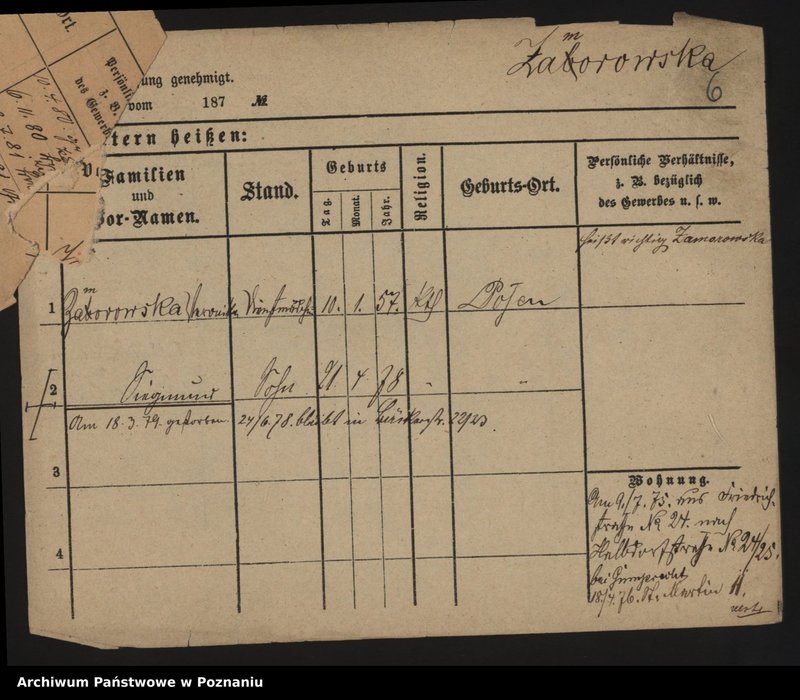 Zaborowska
m
6
ung genehmigt.
vom 187 №
tern heißen:
Familien und Vor-Namen.
Stand.
Geburts
Tag.
Monat.
Jahr.
Religion.
Geburts-Ort.
Persönliche Verhältnisse, z. B. bezüglich des Gewerbes u. s. w.
heißt richtig Zamorowska
m
1 Zaborowska Veronika 10. 1. 57. Kth Posen
2 Siegmund Sohn 21 4 78 " "
Am 18.3.79. gestorben. 24/6.78. bleibt in Bäckerstr.
3
4
Wohnung.
Am 9./7.75. aus Friedrich-
straße № 24. nach
Halbdorfstraße № 24/25.
bei Gumprecht
18/4.76. St. Martin 11.
Archiwum Państwowe w Poznaniu